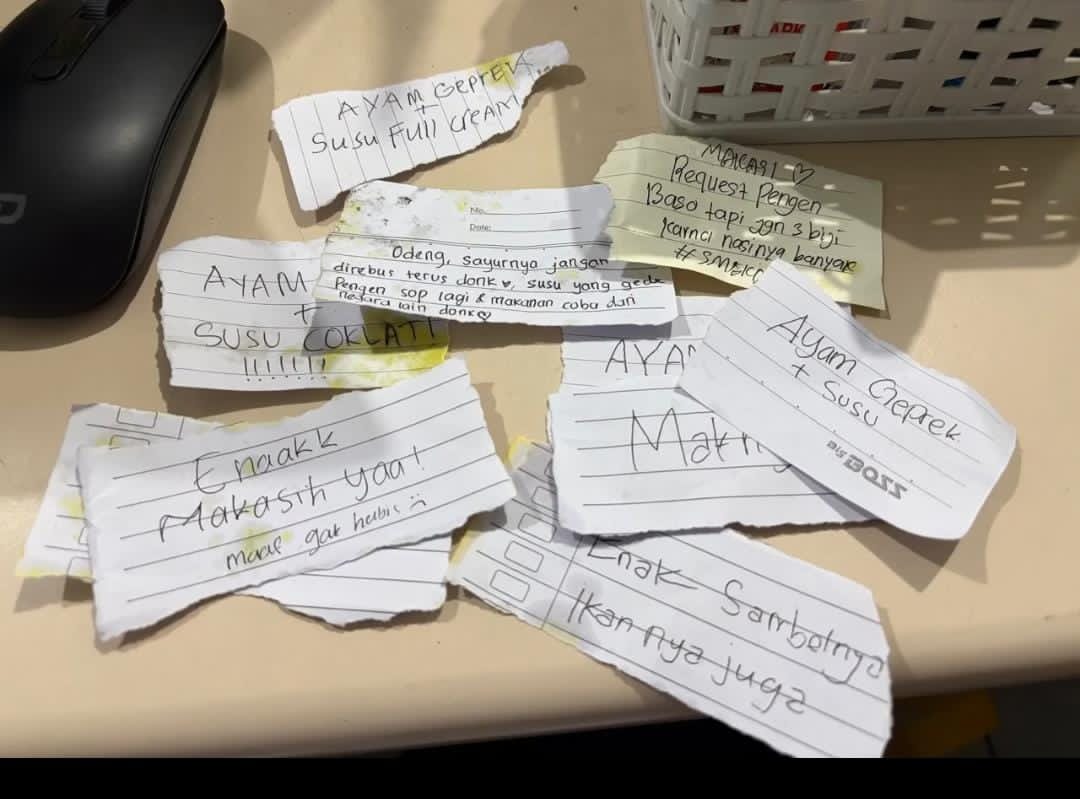 AYAM GEPREK...
+
SUSU FUll CREAM
MAKASI ♡
Request Pengen
Baso tapi jgn 3 biji
karna nasinya banyak
No.
Date:
Odeng, sayurnya jangan
direbus terus donk ♥, susu yang gede
Pengen sop lagi & makanan coba dari
negara lain donk ♡
AYAM
+
SUSU COKLAT!
!!!!!!!
AYAM
Ayam Geprek
+ Susu
BIG BOSS
Enaakk
Makasih yaa!
maaf gak habis :(
Enak Sambelnya
Ikannya juga